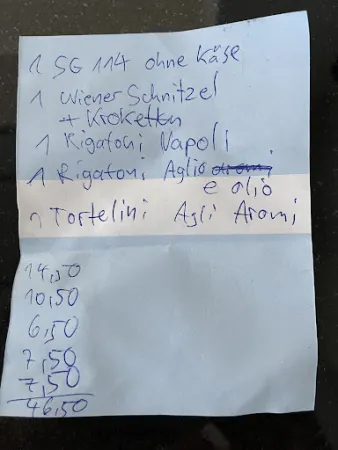 1 SG 114 ohne Käse
1 Wiener Schnitzel
+ Kroketten
1 Rigatoni Napoli
1 Rigatoni Aglio aromi
e olio
1 Tortelini Agli Aromi
14,50
10,50
6,50
7,50
7,50
46,50